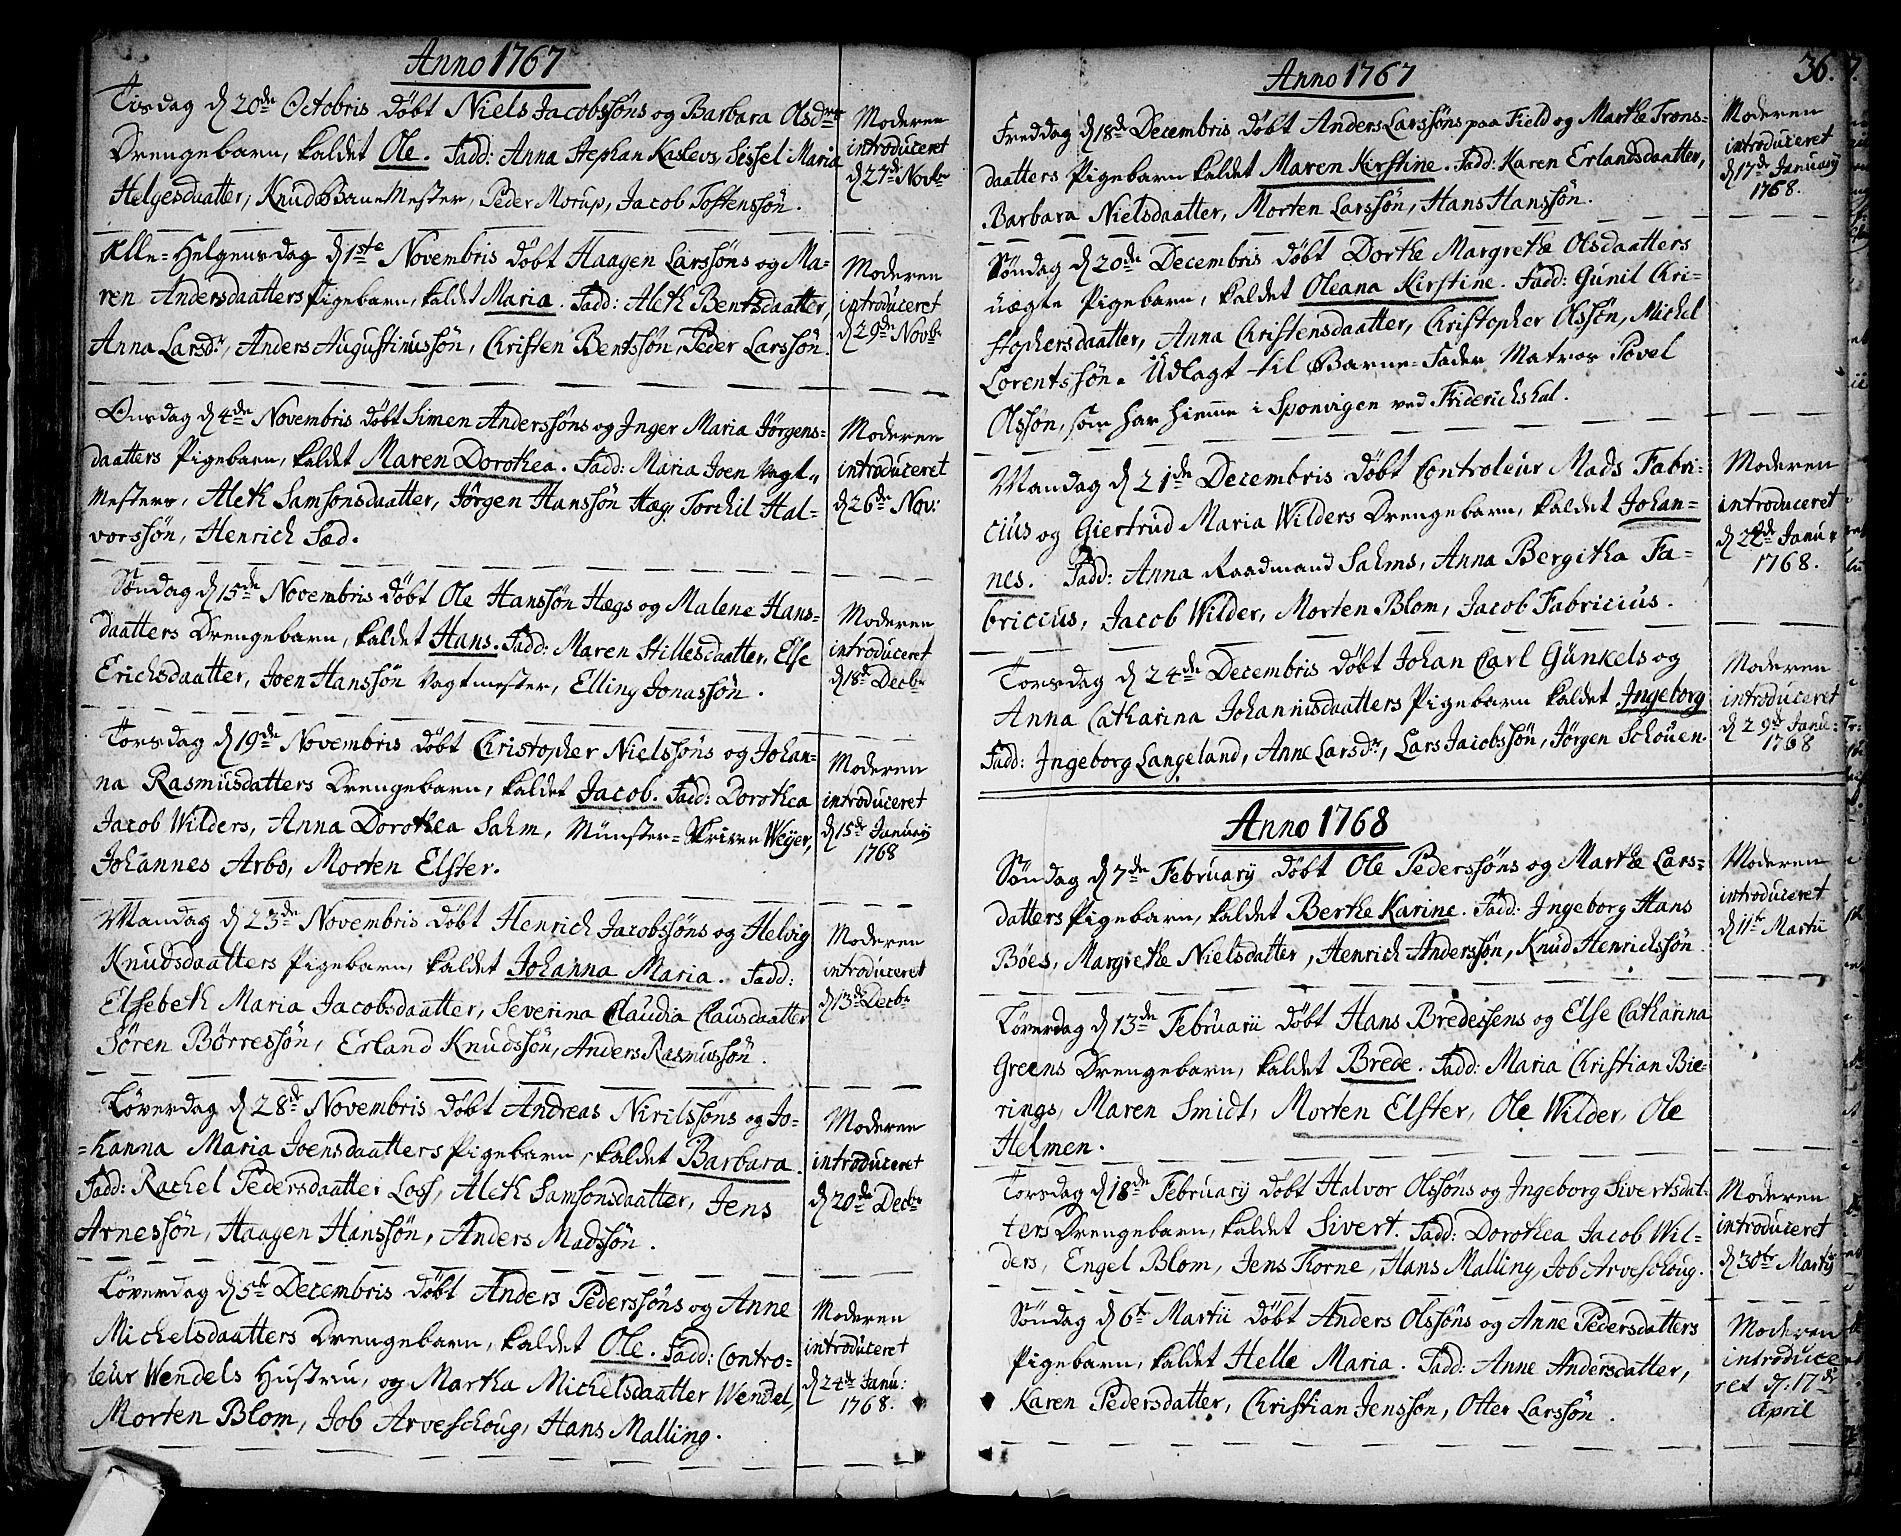 Anno 1767
Tisdag d 20de Octobris döbt Niels Jacobssöns og Barbara Olsdrs
Drengebarn, kaldet Ole. Fadd: Anna Stephan Kaslevs, Sissel Maria
Helgesdaatter, Knud BaneMester, Peder Morup, Jacob Tostenssön.
Moderen
introduceret
d 27de Novbr
Alle-Helgensdag d 1ste Novembris döbt Haagen Larssöns og Ma-
ren Andersdaatters Pigebarn, kaldet Maria. Fadd: Aleth Bentsdaatter,
Anna Larsdr, Anders Augustinussön, Christen Bentssön, Peder Larssön.
Moderen
introduceret
d 29de Novbr
Onsdag d 4de Novembris döbt Simen Anderssöns og Inger Maria Jörgens-
daatters Pigebarn, kaldet Maren Dorothea. Fadd: Maria Joen Vagt-
Mesters, Aleth Samsonsdaatter, Jörgen Hanssön Hæg, Torchil Hal-
vorssön, Henrich Sæd.
Moderen
introduceret
d 26de Nov:
Söndag d 15de Novembris döbt Ole Hanssön Hægs og Malene Hans-
daatters Drengebarn, kaldet Hans. Fadd: Maren Hillesdaatter, Else
Erichsdaatter, Joen Hanssön Vagtmester, Elling Jonassön.
Moderen
introduceret
d 18de Decbr
Torsdag d 19de Novembris döbt Christopher Nielssöns og Johan-
na Rasmusdatters Drengebarn, kaldet Jacob. Fadd: Dorothea
Jacob Wilders, Anna Dorothea Sahm, Münster-Skriver Weyer,
Johannes Arbo, Morten Elster.
Moderen
introduceret
d 15de Januarij
1768
Mandag d 23de Novembris döbt Henrich Jacobssöns og Helvig
Knudsdaatters Pigebarn, kaldet Johanna Maria. Fadd:
Elsebeth Maria Jacobsdaatter, Severina Claudia Clausdaatter
Sören Börressön, Erland Knudssön, Anders Rasmussön.
Moderen
introduceret
d 13de Decbr
Löverdag d 28de Novembris döbt Andreas Nirilssöns og Jo-
-hanna Maria Joensdaatters Pigebarn, kaldet Barbara.
Fadd: Rachel Pedersdaatter Loss, Aleth Samsonsdaatter, Jens
Arnessön, Haagen Hanssön, Anders Madssön.
Moderen
introduceret
d 20de Decbr
Löverdag d 5te Decembris döbt Anders Pederssöns og Anne
Michelsdaatters Drengebarn, kaldet Ole. Fadd: Contro-
leur Wendels Hustrue, og Martha Michelsdaatter Wendel,
Morten Blom, Job Arveschoug, Hans Malling.
Moderen
introduceret
d 24de Janu:
1768.
36.
Anno 1767
Freddag d 18de Decembris döbt Anders Larssöns paa Field og Marthe Trons-
daatters Pigebarn kaldet Maren Kirstine. Fadd: Karen Erlandsdaatter,
Barbara Nielsdaatter, Morten Larssön, Hans Hanssön.
Moderen
introduceret
d 17de Januarij
1768.
Söndag d 20de Decembris döbt Dorthe Margrethe Olsdaatters
uægte Pigebarn, kaldet Oleana Kirstine. Fadd: Gunil Chri-
stophersdaatter, Anna Christensdaatter, Christopher Olssön, Michel
Lorentssön. Udlagt til Barne-Fader Matros Povel
Olssön, som har hiemme i Sponvigen ved Friderichshal.
Mandag d 21de Decembris döbt Controleur Mads Fabri-
cius og Giertrud Maria Wilders Drengebarn, kaldet Johan-
nes. Fadd: Anna Raadmand Sahms, Anna Bergitha Fa-
bricius, Jacob Wilder, Morten Blom, Jacob Fabricius.
Moderen
introduceret
d 22de Janu
1768.
Torsdag d 24de Decembris döbt Johan Carl Günkels og
Anna Catharina Johannisdaatters Pigebarn kaldet Ingeborg
Fadd: Ingeborg Langeland, Anne Larsdr, Lars Jacobssön, Jörgen Schouen.
Moderen
introduceret
d 29de Janu:
1768
Anno 1768
Söndag d 7de Februarij döbt Ole Pederssöns og Marthe Lars-
datters Pigebarn, kaldet Berthe Karine. Fadd: Ingeborg Hans
Böes, Margrethe Nielsdatter, Henrich Anderssön, Knud Henrichssön.
Moderen
introduceret
d 11te Martii
Löverdag d 13de Februarii döbt Hans Bredessens og Else Catharina
Greens Drengebarn, kaldet Brede. Fadd: Maria Christian Bie-
rings, Maren Smidt, Morten Elster, Ole Wilder, Ole
Helmen.
Torsdag d 18de Februarij döbt Halvor Olssöns og Ingeborg Sivertsdat-
ters Drengebarn, kaldet Sivert. Fadd: Dorothea Jacob Wil-
ders, Engel Blom, Jens Korne, Hans Malling, Job Arveschoug.
Moderen
introduceret
d 30te Martij
Söndag d 6te Martii döbt Anders Olssöns og Anne Pedersdatters
Pigebarn, kaldet Helle Maria. Fadd: Anne Andersdatter,
Karen Pedersdatter, Christian Jenssön, Otter Larssön.
Moderen
introduce
ret d: 17de
April